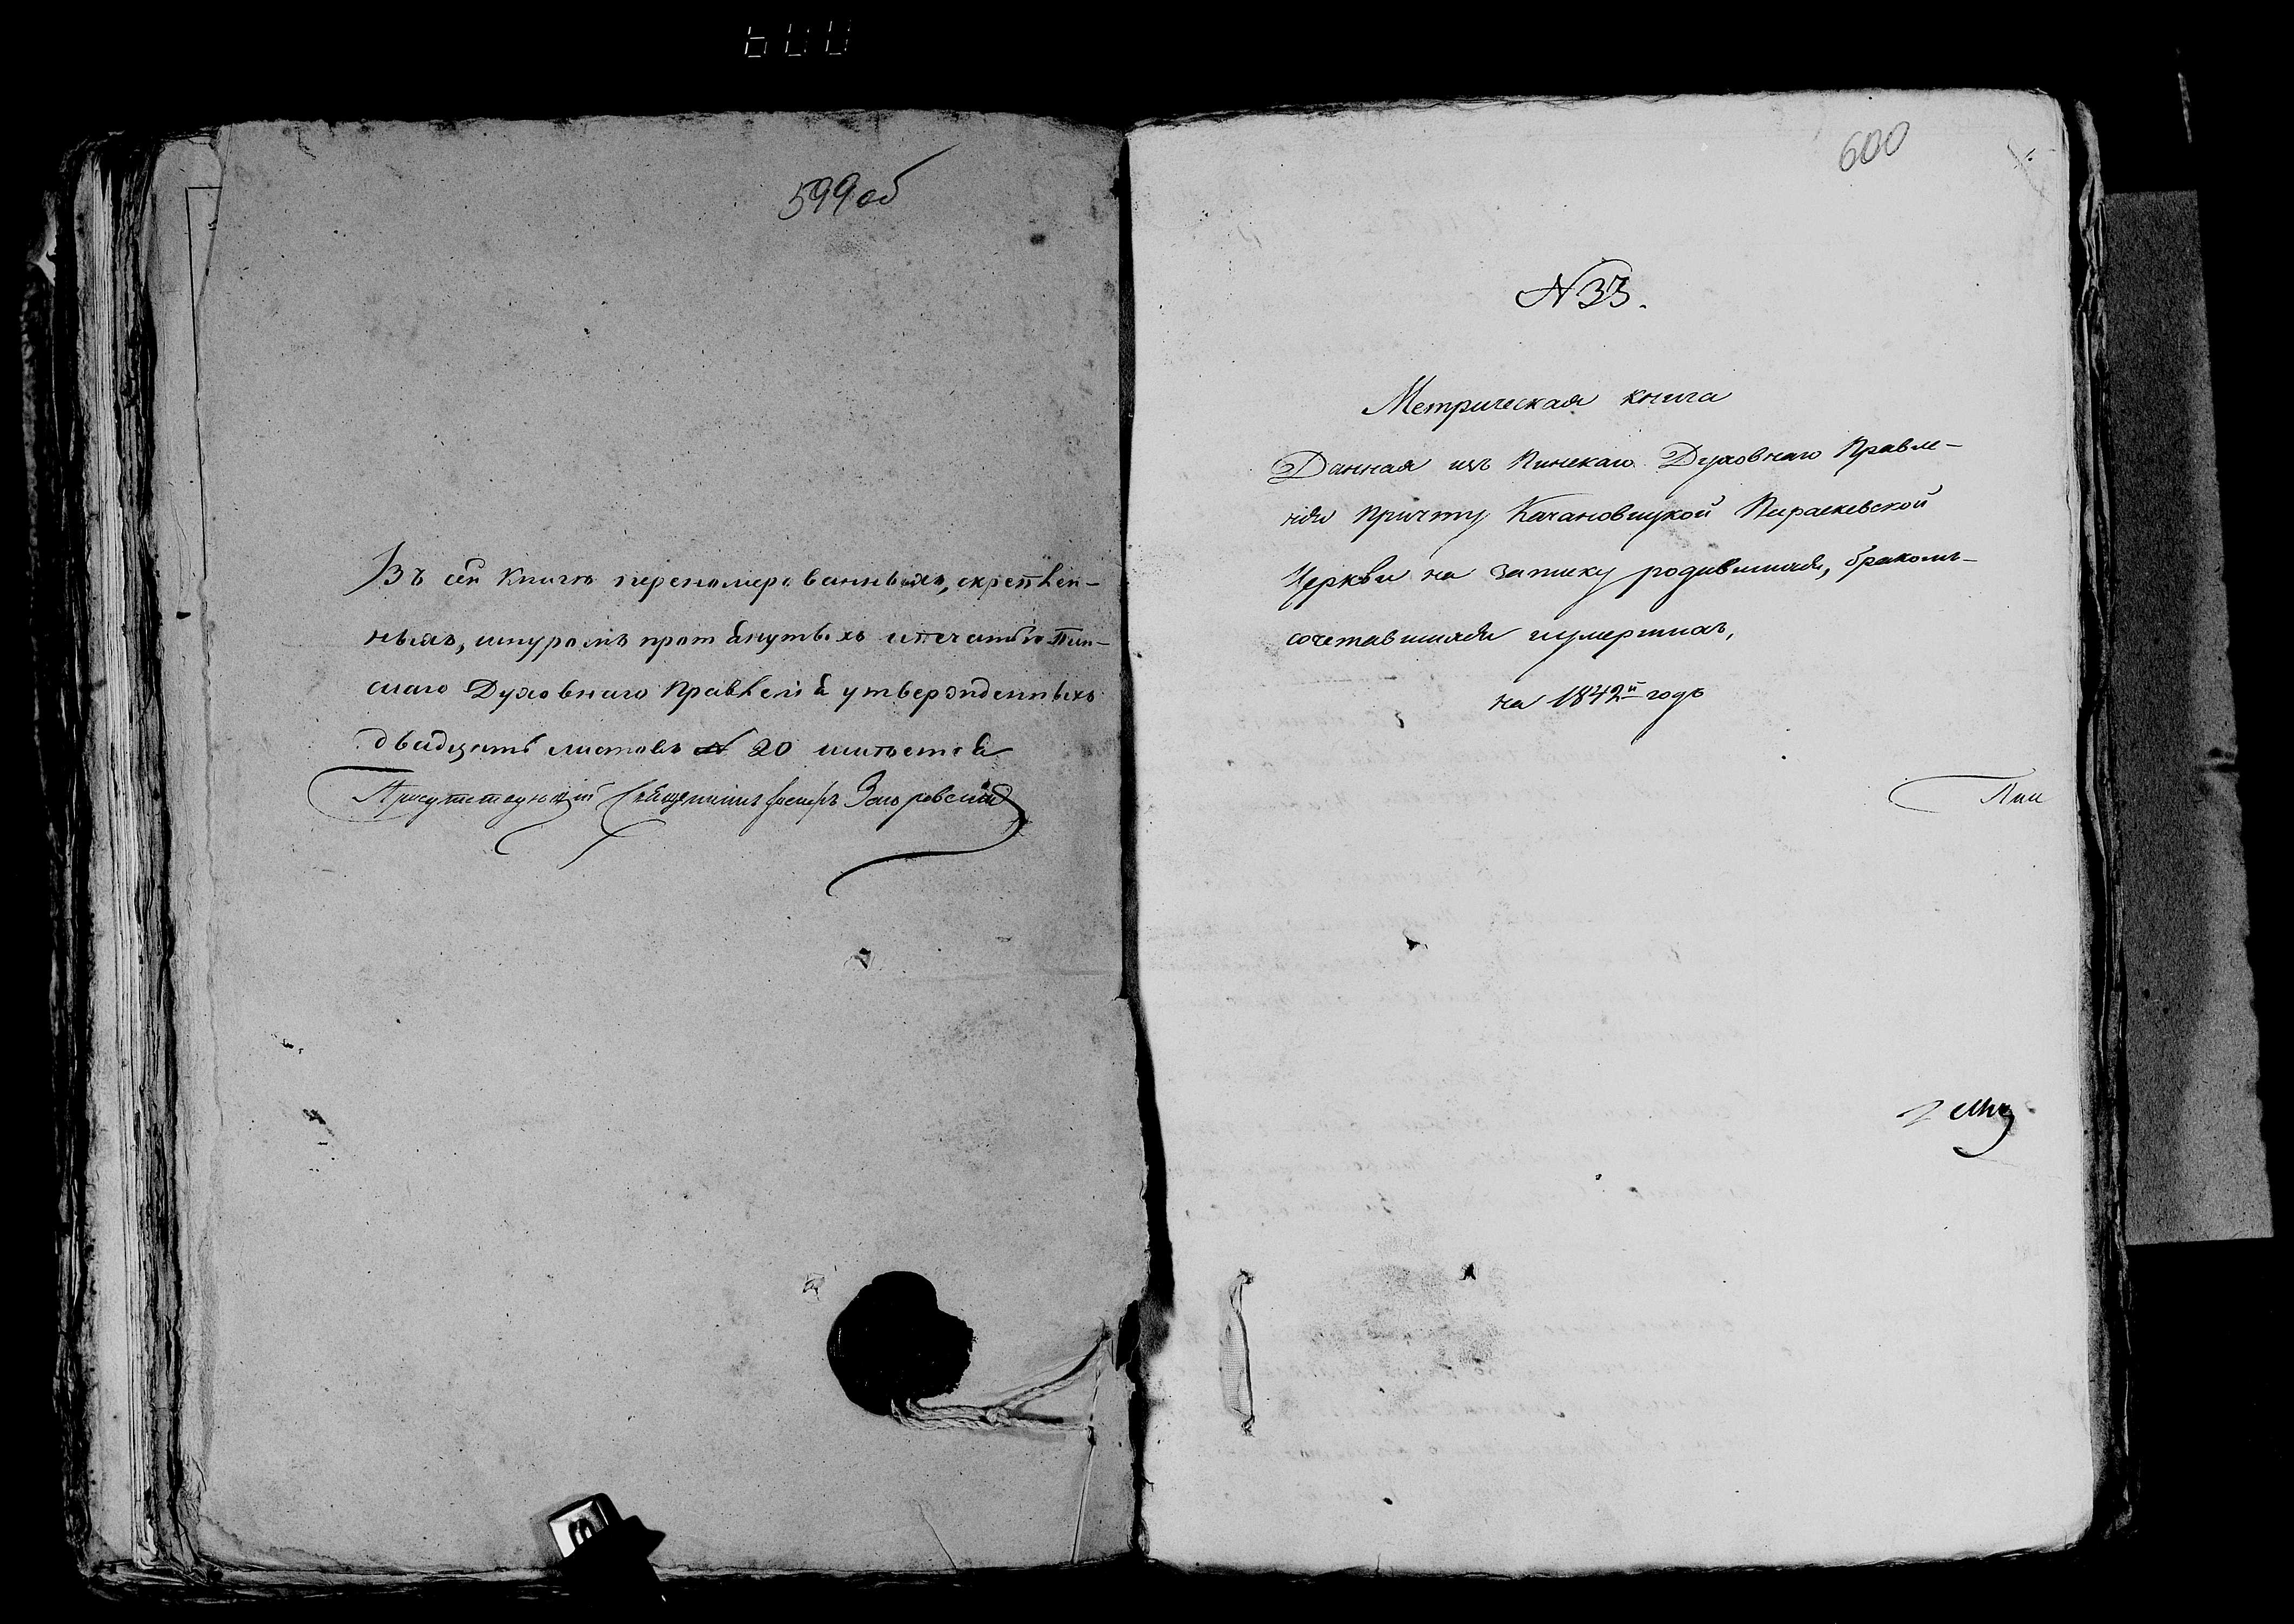 600
599 об
Въ сей Книгѣ перенумерованныхъ, скрѣплен-
ныхъ, шнуромъ протянутыхъ и печатью Пин-
скаго Духовнаго Правленія утвержденныхъ
двадцать листовъ № 20 шитьется
Присутствующій Священникъ Загоровскій
600
N 33.
Метрическая книга
Данная изъ Пинскаго Духовнаго Правле-
нія Причту Качановицкой Параскевской
Церкви на записку родившихся, бракомъ-
сочетавшихся и умершихъ,
на 1842й годъ
Пин